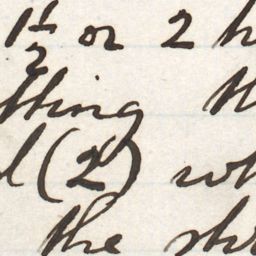 1½ or 2 h
tting th
l (2) wh
the